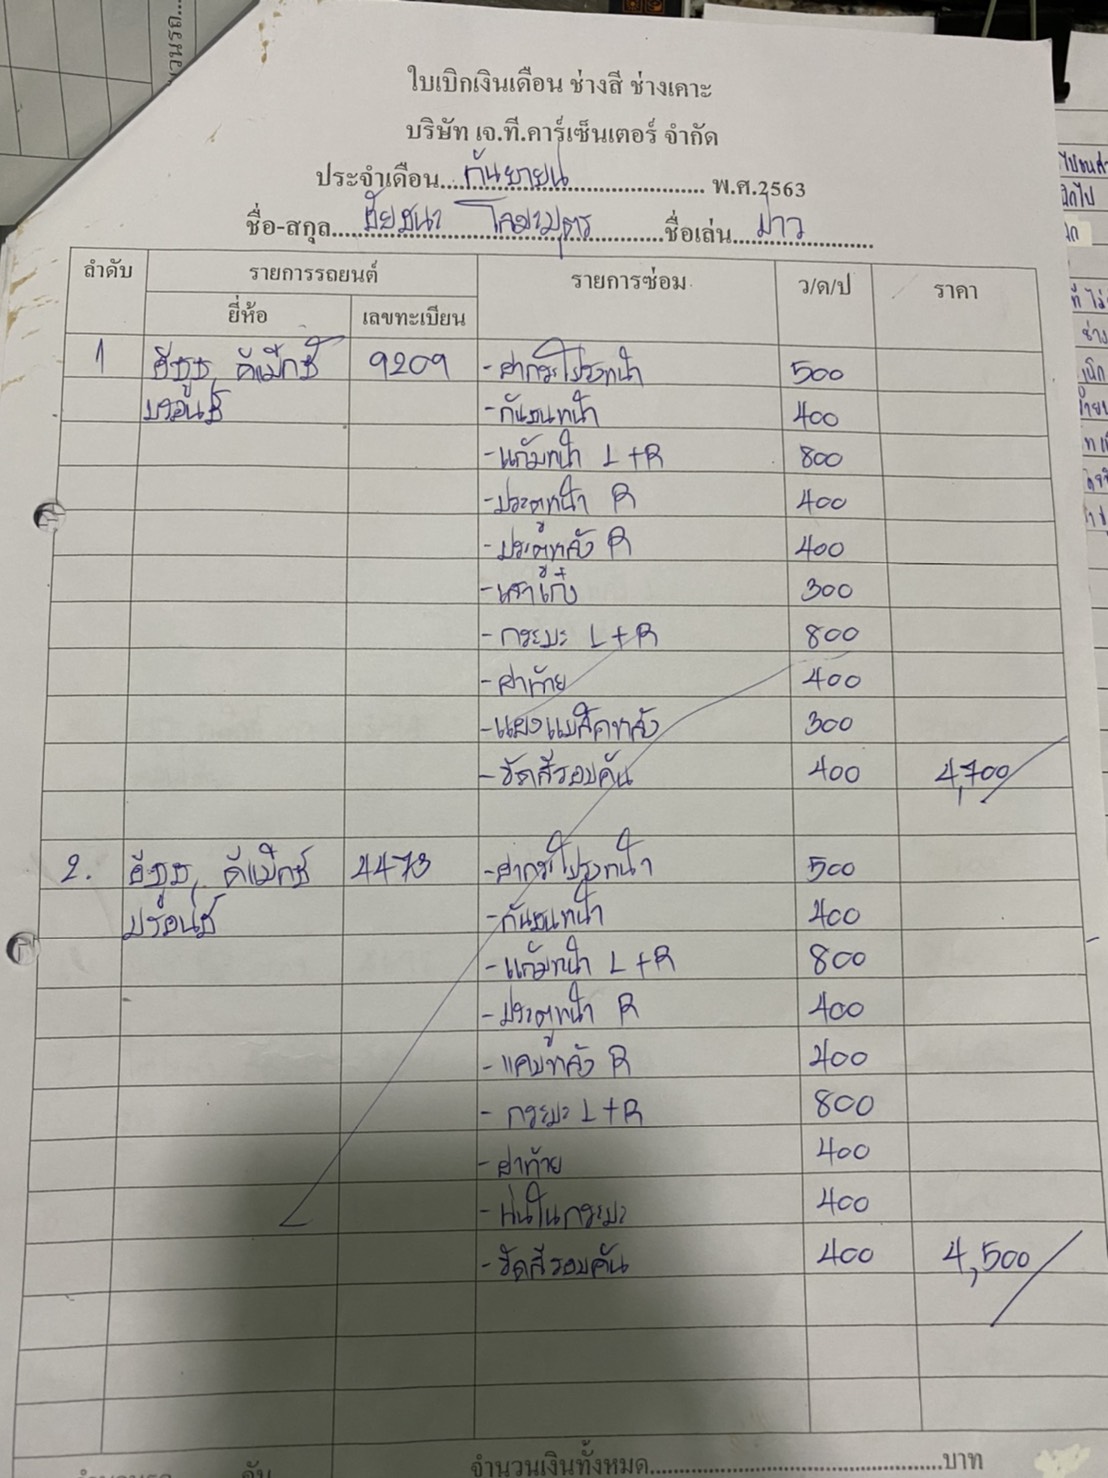 ใบเบิกเงินเดือน ช่างสี ช่างเคาะ
บริษัท เจ.ที.คาร์เซ็นเตอร์ จำกัด
ประจำเดือน....กันยายน............................ พ.ศ.2563
ชื่อ-สกุล....ชัยชนะ โคษะบุตร............ชื่อเล่น....บ่าว............
ลำดับ รายการรถยนต์ รายการซ่อม ว/ด/ป ราคา
ยี่ห้อ เลขทะเบียน
1 อีซูซุ, ดีแม็กซ์ 9209 -ฝากระโปรงหน้า 500
บรอนซ์ -กันชนหน้า 400
-แก้มหน้า L+R 800
-ประตูหน้า R 400
-ประตูหลัง R 400
-เสาเก๋ง 300
-กระบะ L+R 800
-ฝาท้าย 400
-แผงแมสคหลัง 300
-ขัดสีรอบคัน 400 4,700/
2. อีซูซุ, ดีแม็กซ์ 4473 -ฝากระโปรงหน้า 500
บรอนซ์ -กันชนหน้า 400
-แก้มหน้า L+R 800
-ประตูหน้า R 400
-แคบหลัง R 400
-กระบะ L+R 800
-ฝาท้าย 400
-พ่นในกระบะ 400
-ขัดสีรอบคัน 400 4,500/
คัน จำนวนเงินทั้งหมด....................................บาท